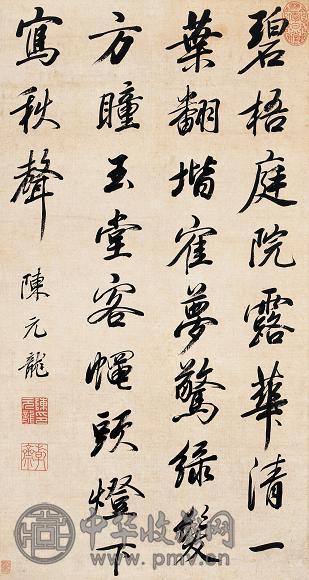 碧梧庭院露華清一
葉翻堦寉夢驚緑髮
方瞳玉堂客蠅頭燈下
寫秋聲
陳元龍
中华收藏网
www.pmv.cn